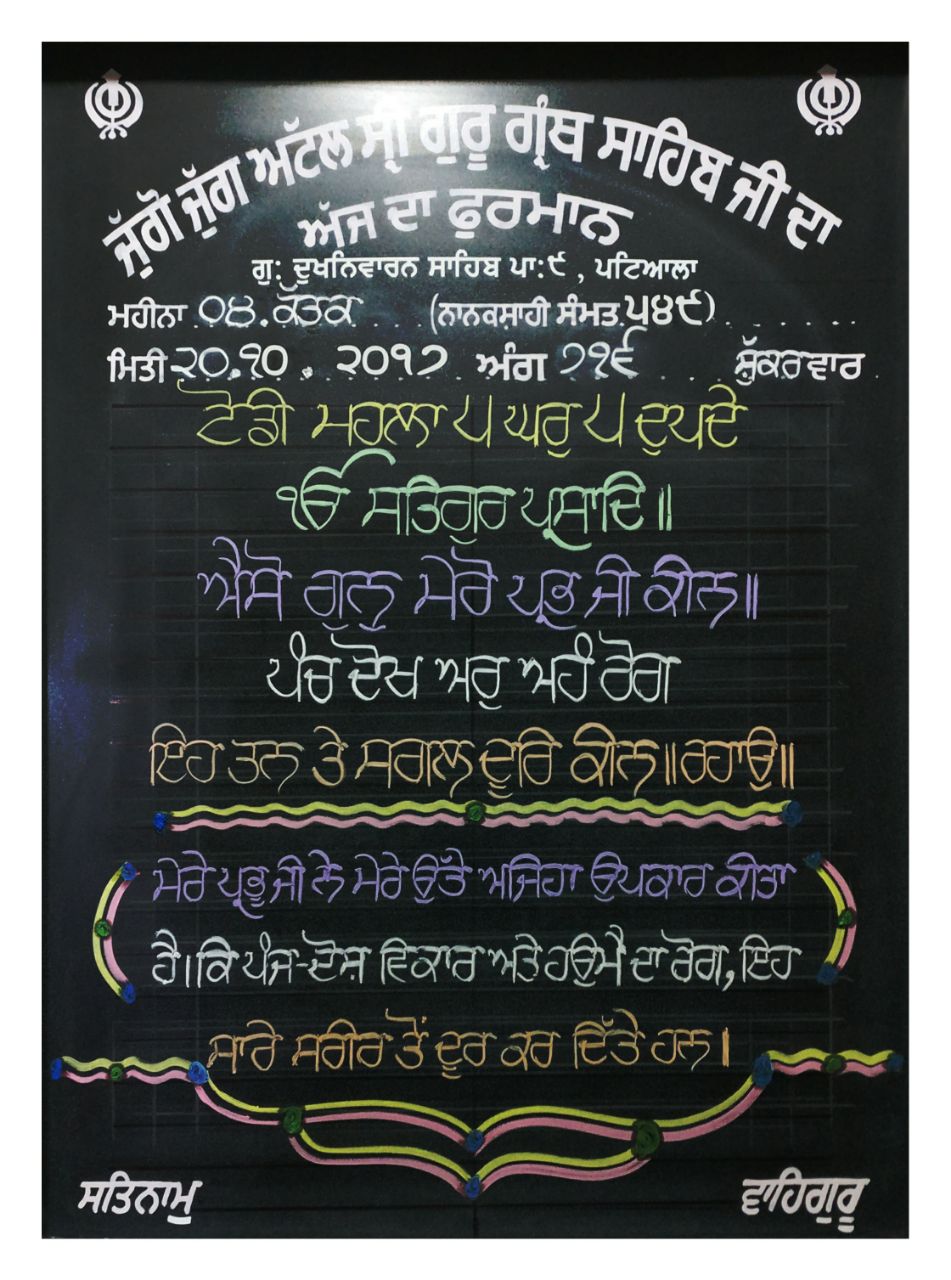 ਜੁੱਗੋ ਜੁੱਗ ਅਟੱਲ ਸ੍ਰੀ ਗੁਰੂ ਗ੍ਰੰਥ ਸਾਹਿਬ ਜੀ ਦਾ
ਅੱਜ ਦਾ ਫੁਰਮਾਨ
ਗੁ: ਦੁਖਨਿਵਾਰਨ ਸਾਹਿਬ ਪਾ:੯, ਪਟਿਆਲਾ
ਮਹੀਨਾ ੦੪. ਕੱਤਕ (ਨਾਨਕਸ਼ਾਹੀ ਸੰਮਤ ੫੪੯)
ਮਿਤੀ ੨੦.੧੦.੨੦੧੭ ਅੰਗ ੭੧੬ ਸ਼ੁੱਕਰਵਾਰ
ਟੋਡੀ ਮਹਲਾ ੫ ਘਰੁ ੫ ਦੁਪਦੇ
ੴ ਸਤਿਗੁਰ ਪ੍ਰਸਾਦਿ॥
ਐਸੋ ਗੁਨੁ ਮੇਰੋ ਪ੍ਰਭ ਜੀ ਕੀਨ॥
ਪੰਚ ਦੋਖ ਅਰੁ ਅਹੰ ਰੋਗ
ਇਹ ਤਨ ਤੇ ਸਗਲ ਦੂਰਿ ਕੀਨ॥ਰਹਾਉ॥
ਮੇਰੇ ਪ੍ਰਭੂ ਜੀ ਨੇ ਮੇਰੇ ਉੱਤੇ ਅਜਿਹਾ ਉਪਕਾਰ ਕੀਤਾ
ਹੈ।ਕਿ ਪੰਜ-ਦੋਸ਼ ਵਿਕਾਰ ਅਤੇ ਹਉਮੈ ਦਾ ਰੋਗ, ਇਹ
ਸਾਰੇ ਸਰੀਰ ਤੋਂ ਦੂਰ ਕਰ ਦਿੱਤੇ ਹਨ।
ਸਤਿਨਾਮੁ ਵਾਹਿਗੁਰੂ